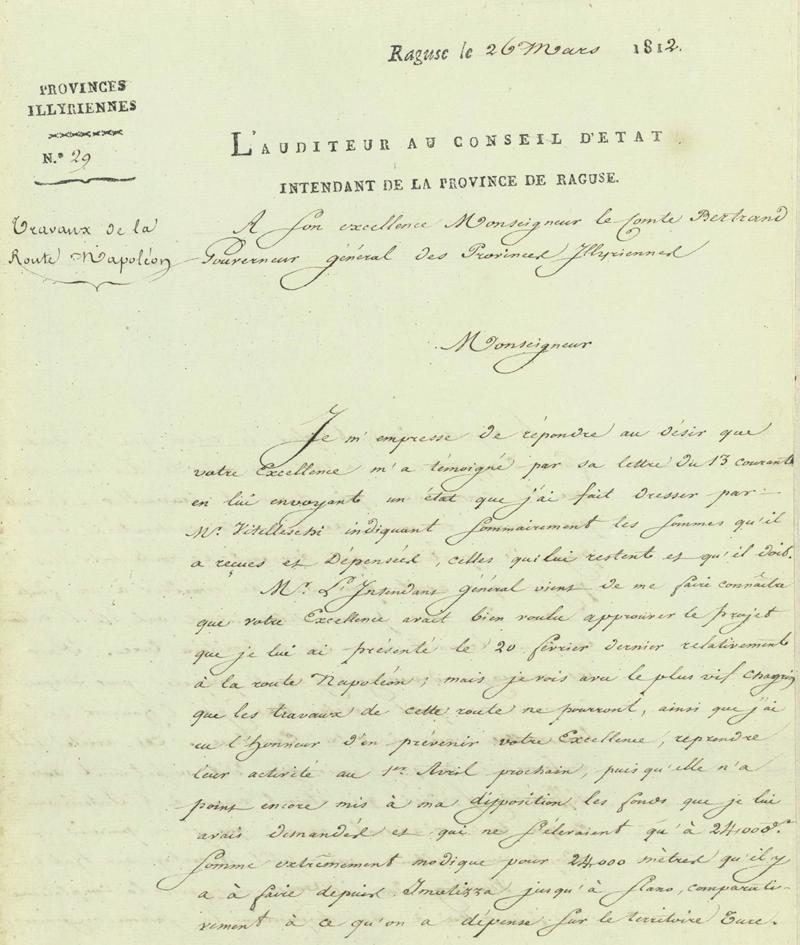 Raguse le 26 Mars 1812.
PROVINCES
ILLYRIENNES
N.° 29
L'AUDITEUR AU CONSEIL D'ETAT
INTENDANT DE LA PROVINCE DE RAGUSE.
Travaux de la
Route Napoléon
A Son excellence Monseigneur le Comte Bertrand
Gouverneur général des Provinces Illyriennes
Monseigneur
Je m'empresse de répondre au désir que
votre Excellence m'a témoigné par sa lettre du 13 courant
en lui envoyant un état que j'ai fait dresser par
Mr. Vitelleschi indiquant sommairement les sommes qu'il
a reçues et dépensées, celles qui lui restent et qu'il doit.
Mr. L'Intendant général vient de me faire connaître
que votre Excellence avait bien voulu approuver le projet
que je lui ai présenté le 20 février dernier relativement
à la route Napoléon ; mais je vois avec le plus vif chagrin
que les travaux de cette route ne pourront, ainsi que j'ai
eu l'honneur d'en prévenir votre Excellence, reprendre
leur activité au 1er. Avril prochain, puisqu'elle n'a
point encore mis à ma disposition les fonds que je lui
avais demandés et qui ne s'éleraient qu'à 24,000 f.
somme extrêmement modique pour 24,000 mètres qu'il y
a à faire depuis Imotizza jusqu'à Slano, comparati-
vement à ce qu'on a dépensé sur le territoire Turc.